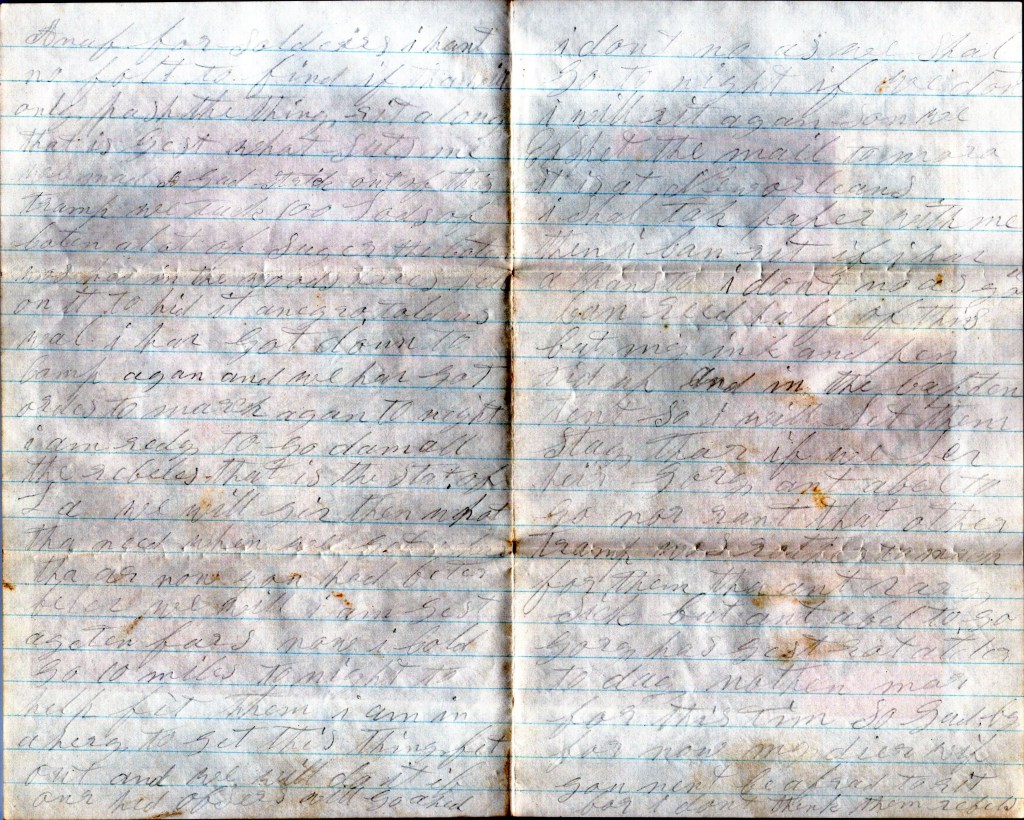 Anuf for Soldiers i hant
no folt to find if tha wil
only push the thing rit along
that is gest what Suts me
we mad a Gad out of this
tramp we tuck 600 lods of
coten a lot of Suger the coten
was hid in the woods
on it to hid it a negro told us
wal i hav Got down to
camp agan and we hav Got
ordes to march agan to night
i am redy to Go dam all
the rebeles that is the Stat of
La we will giv them what
tha need when we Got
tha ar now you had beter
belev we will i am gest
agoten fars now i cold
Go 10 miles to night to
help fit them i am in
a hery to Get this thing fit
out and we will do it if
our hed ofsers will Go ahed
i dont no as we shal
Go to night if we dont
i will rit again you we
exspect the mail to mora
it is at Neworleans
i shal tak paper with me
then i can rit if i hav
a chanst i dont no as you
can reed half of this
but my ink and pen
rid up and in the
tent So i will let them
Stay thar if we
her Gorg ant abel to
Go nor rant that other
tramp
for them tha ant vary
Sick but ant abel to Go
Gorg has gest rot a leter
to day nothen mor
for this tim So Gad by
for now my dier wif
you nent be afrad to rit
for i dont think them rebels